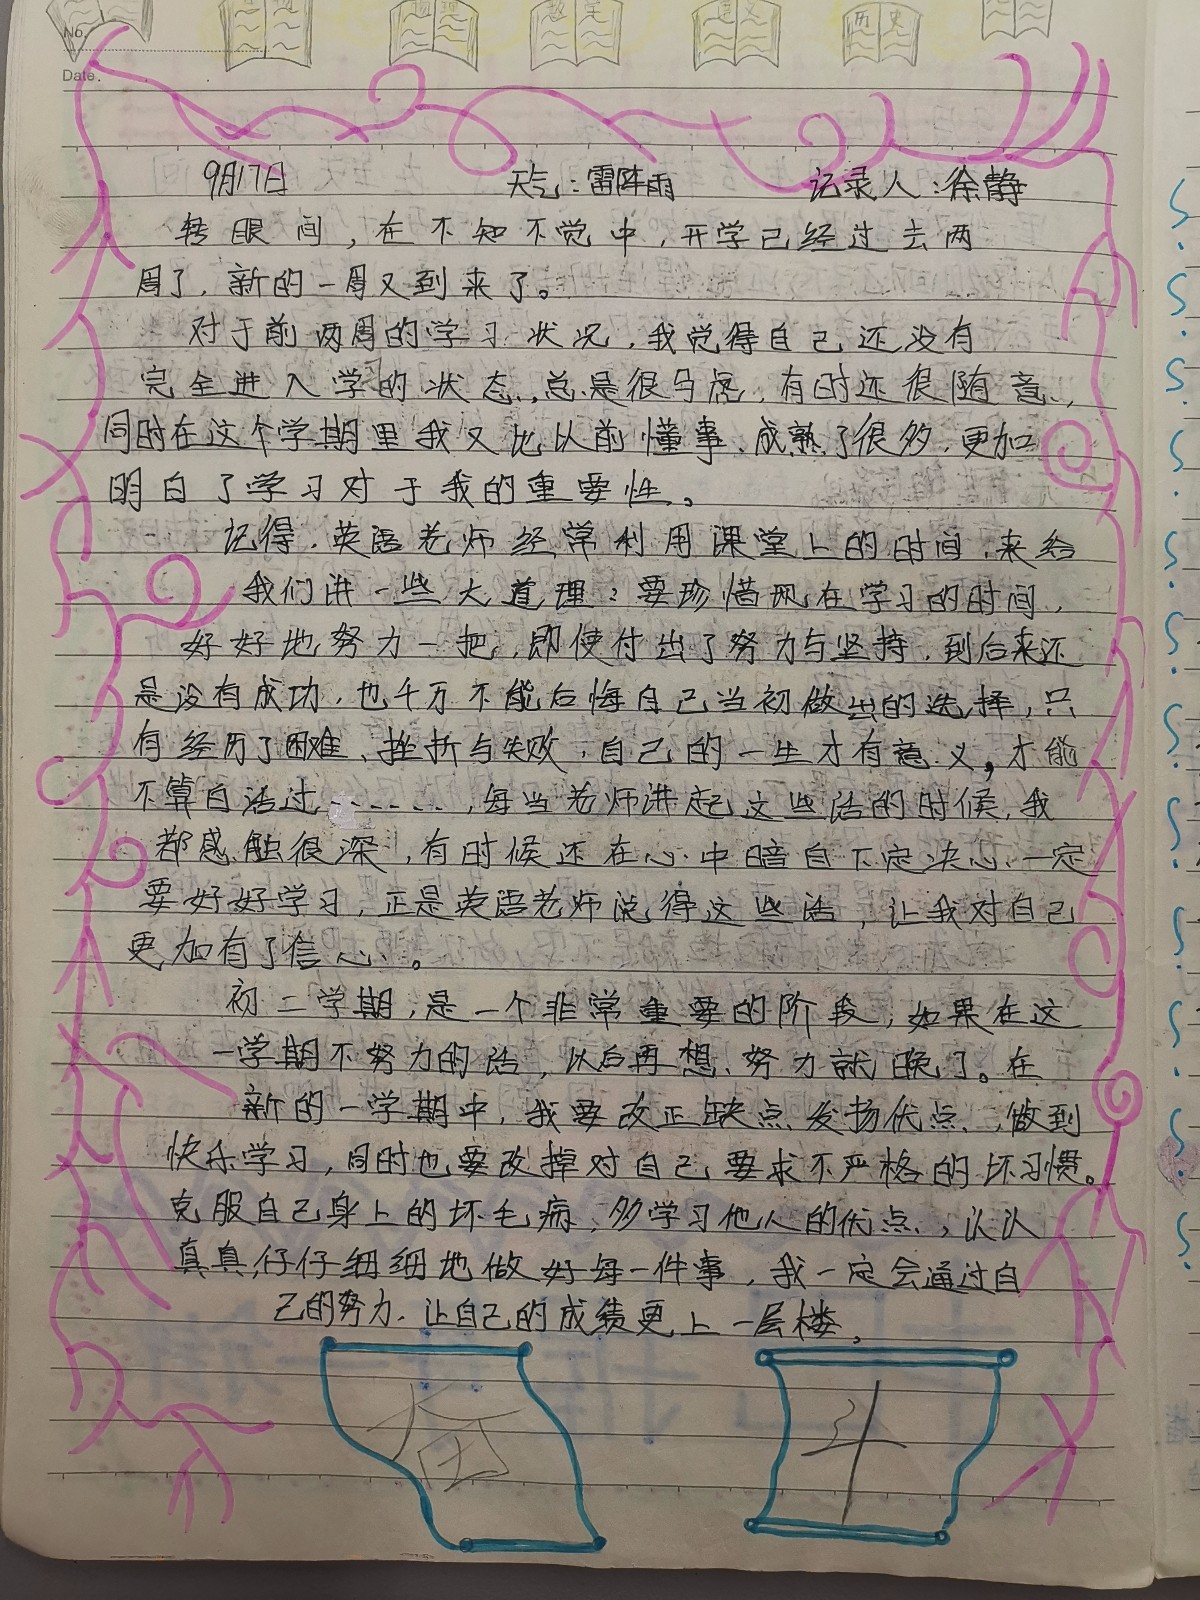 物理 数学 语文 历史
No.
Date.
9月17日 天气:雷阵雨 记录人:徐静
转眼间,在不知不觉中,开学已经过去两
周了,新的一周又到来了。
对于前两周的学习状况,我觉得自己还没有
完全进入学的状态,总是很马虎,有时还很随意,
同时在这个学期里我又比以前懂事、成熟了很多,更加
明白了学习对于我的重要性。
记得,英语老师经常利用课堂上的时间,来给
我们讲一些大道理:要珍惜现在学习的时间,
好好地努力一把,即使付出了努力与坚持,到后来还
是没有成功,也千万不能后悔自己当初做出的选择,只
有经历了困难、挫折与失败,自己的一生才有意义,才能
不算白活过......,每当老师讲起这些话的时候,我
都感触很深,有时候还在心中暗自下定决心,一定
要好好学习,正是英语老师说得这些话,让我对自己
更加有了信心。
初二学期,是一个非常重要的阶段,如果在这
一学期不努力的话,以后再想努力就晚了。在
新的一学期中,我要改正缺点,发扬优点,做到
快乐学习,同时也要改掉对自己要求不严格的坏习惯。
克服自己身上的坏毛病,多学习他人的优点,认认
真真,仔仔细细地做好每一件事,我一定会通过自
己的努力,让自己的成绩更上一层楼,
奋 斗